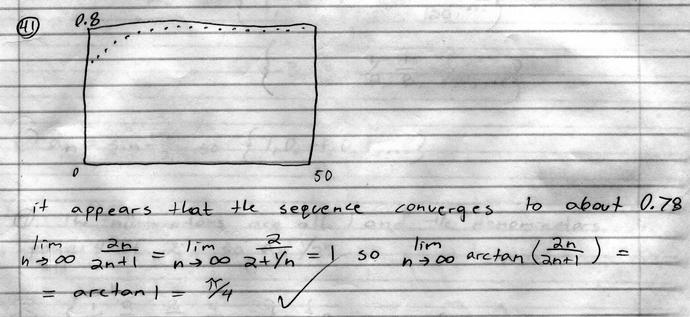 41
0.8
0 50
it appears that the sequence converges to about 0.78
lim n→∞ 2n/2n+1 = lim n→∞ 2/2+1/n = 1 so lim n→∞ arctan(2n/2n+1) =
= arctan 1 = π/4 ✓